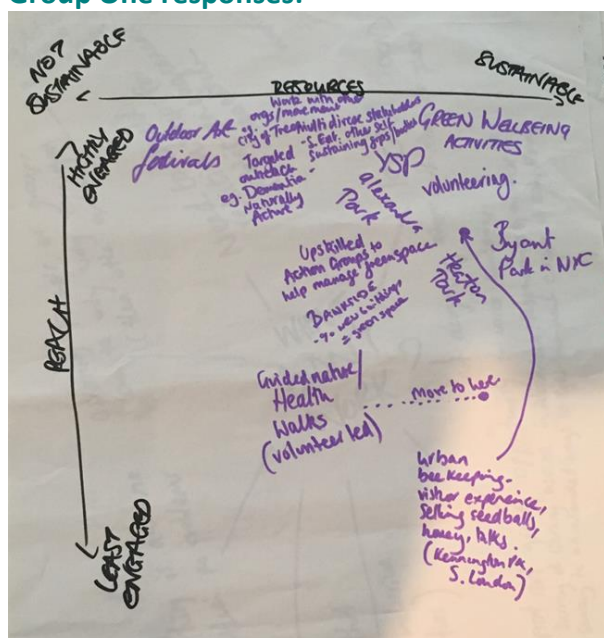 Group One responses:
NOT
SUSTAINABLE
RESOURCES
SUSTAINABLE
HIGHLY
ENGAGED
REACH
LEAST
ENGAGED
Outdoor Art
festivals
Work with other
orgs/movements
eg.
City of Trees
Multi diverse stakeholders
- S. Ent. other self
sustaining gps/bodies
Targeted
outreach
eg. Dementia -
Naturally
Active
GREEN WELLBEING
ACTIVITIES
YSP
volunteering.
Alexandra
Park
Upskilled
Action Groups to
help manage greenspace
BANKSIDE
- % new buildings
= greenspace
Heaton
Park
Byant
Park in NYC
Guided nature/
Health
Walks
(volunteer led)
More to here
urban
beekeeping -
visitor experience,
selling seedballs,
honey, talks.
(Kennington Pk,
S. London)